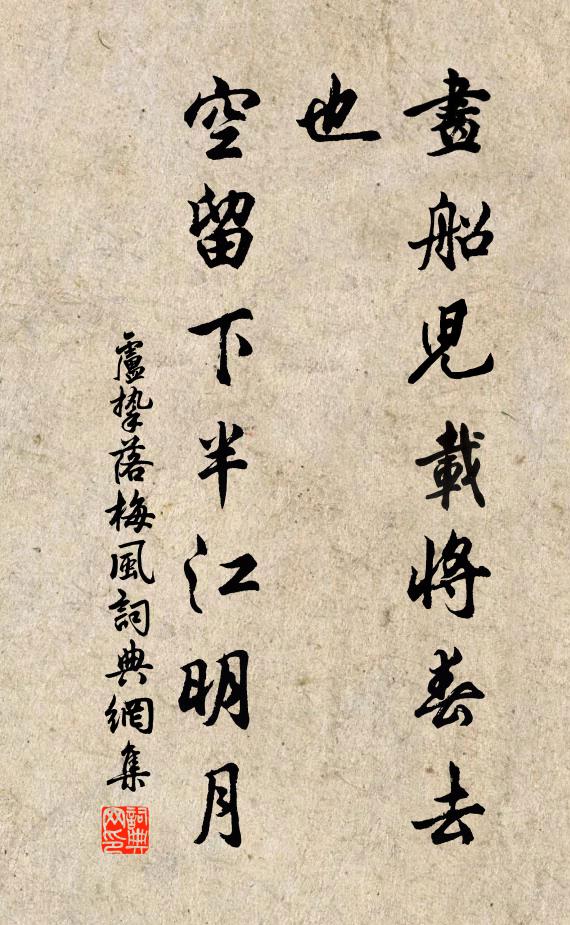 畫船兒載將春去
也
空留下半江明月
盧摯落梅風詞典網集
詞典網印